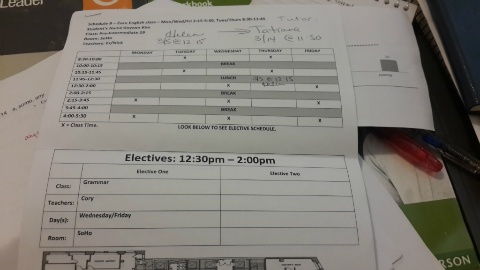 Schedule 9 – Core English class – Mon/Wed/Fri 2:15-5:30, Tues/Thurs 8:30-11:45
Student's Name:
Class: Pre-Intermediate
Room: SoHo
Teachers:
Tutor:
Helen
Tatiana
3/5 @ 12:15
3/14 @ 11:30
MONDAY TUESDAY WEDNESDAY THURSDAY FRIDAY
8:30-10:00 X X
10:00-10:15 BREAK
10:15-11:45 X X
11:45-12:30 LUNCH
12:30-2:00 X X
2:00-2:15 BREAK
2:15-3:45 X X X
3:45-4:00 BREAK
4:00-5:30 X X X
X = Class Time. LOOK BELOW TO SEE ELECTIVE SCHEDULE.
Electives: 12:30pm – 2:00pm
Elective One Elective Two
Class: Grammar
Teachers: Cory
Day(s): Wednesday/Friday
Room: SoHo